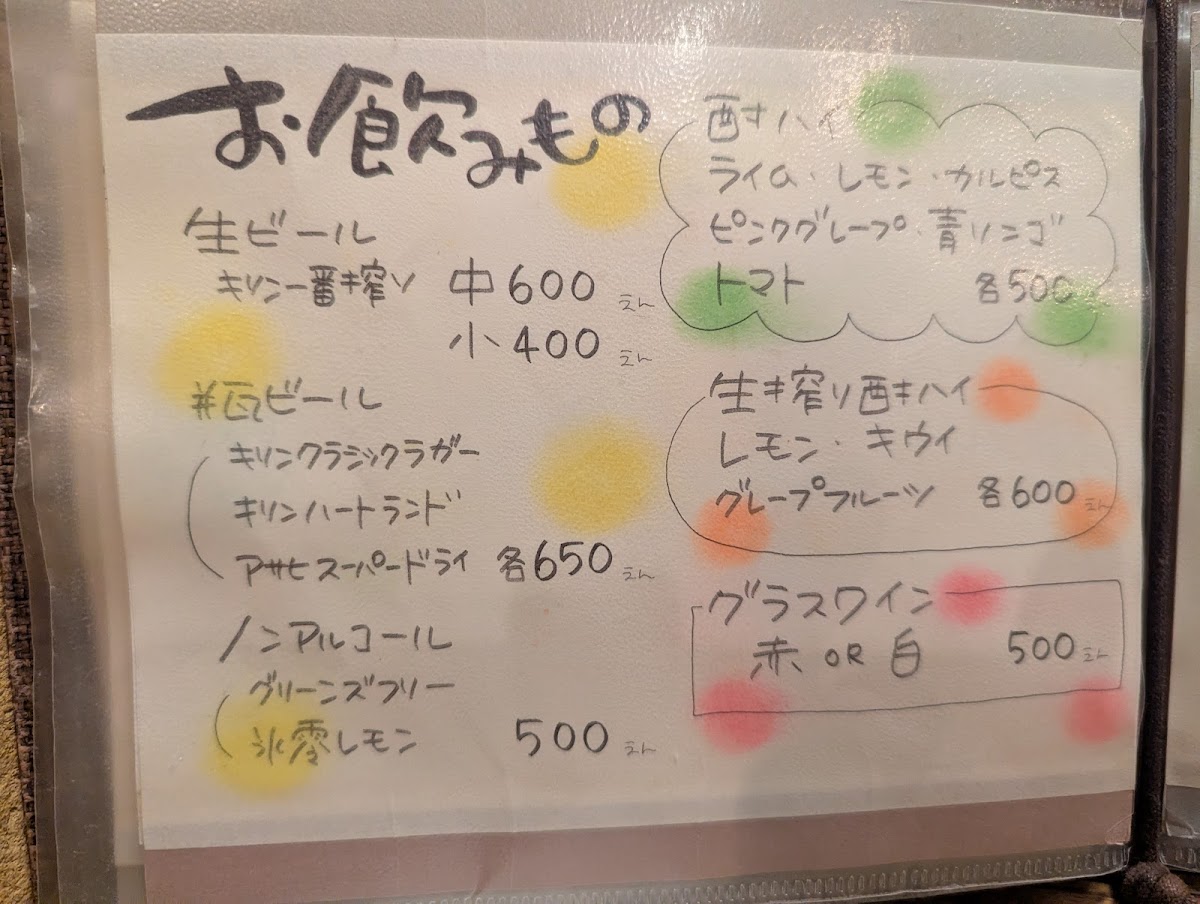 お飲みもの
生ビール
キリン一番搾り 中600えん
小400えん
瓶ビール
キリンクラシックラガー
キリンハートランド
アサヒスーパードライ 各650えん
ノンアルコール
グリーンズフリー
氷零レモン 500えん
酎ハイ
ライム・レモン・カルピス
ピンクグレープ・青リンゴ
トマト 各500
生搾り酎ハイ
レモン・キウイ
グレープフルーツ 各600えん
グラスワイン
赤 OR 白 500えん